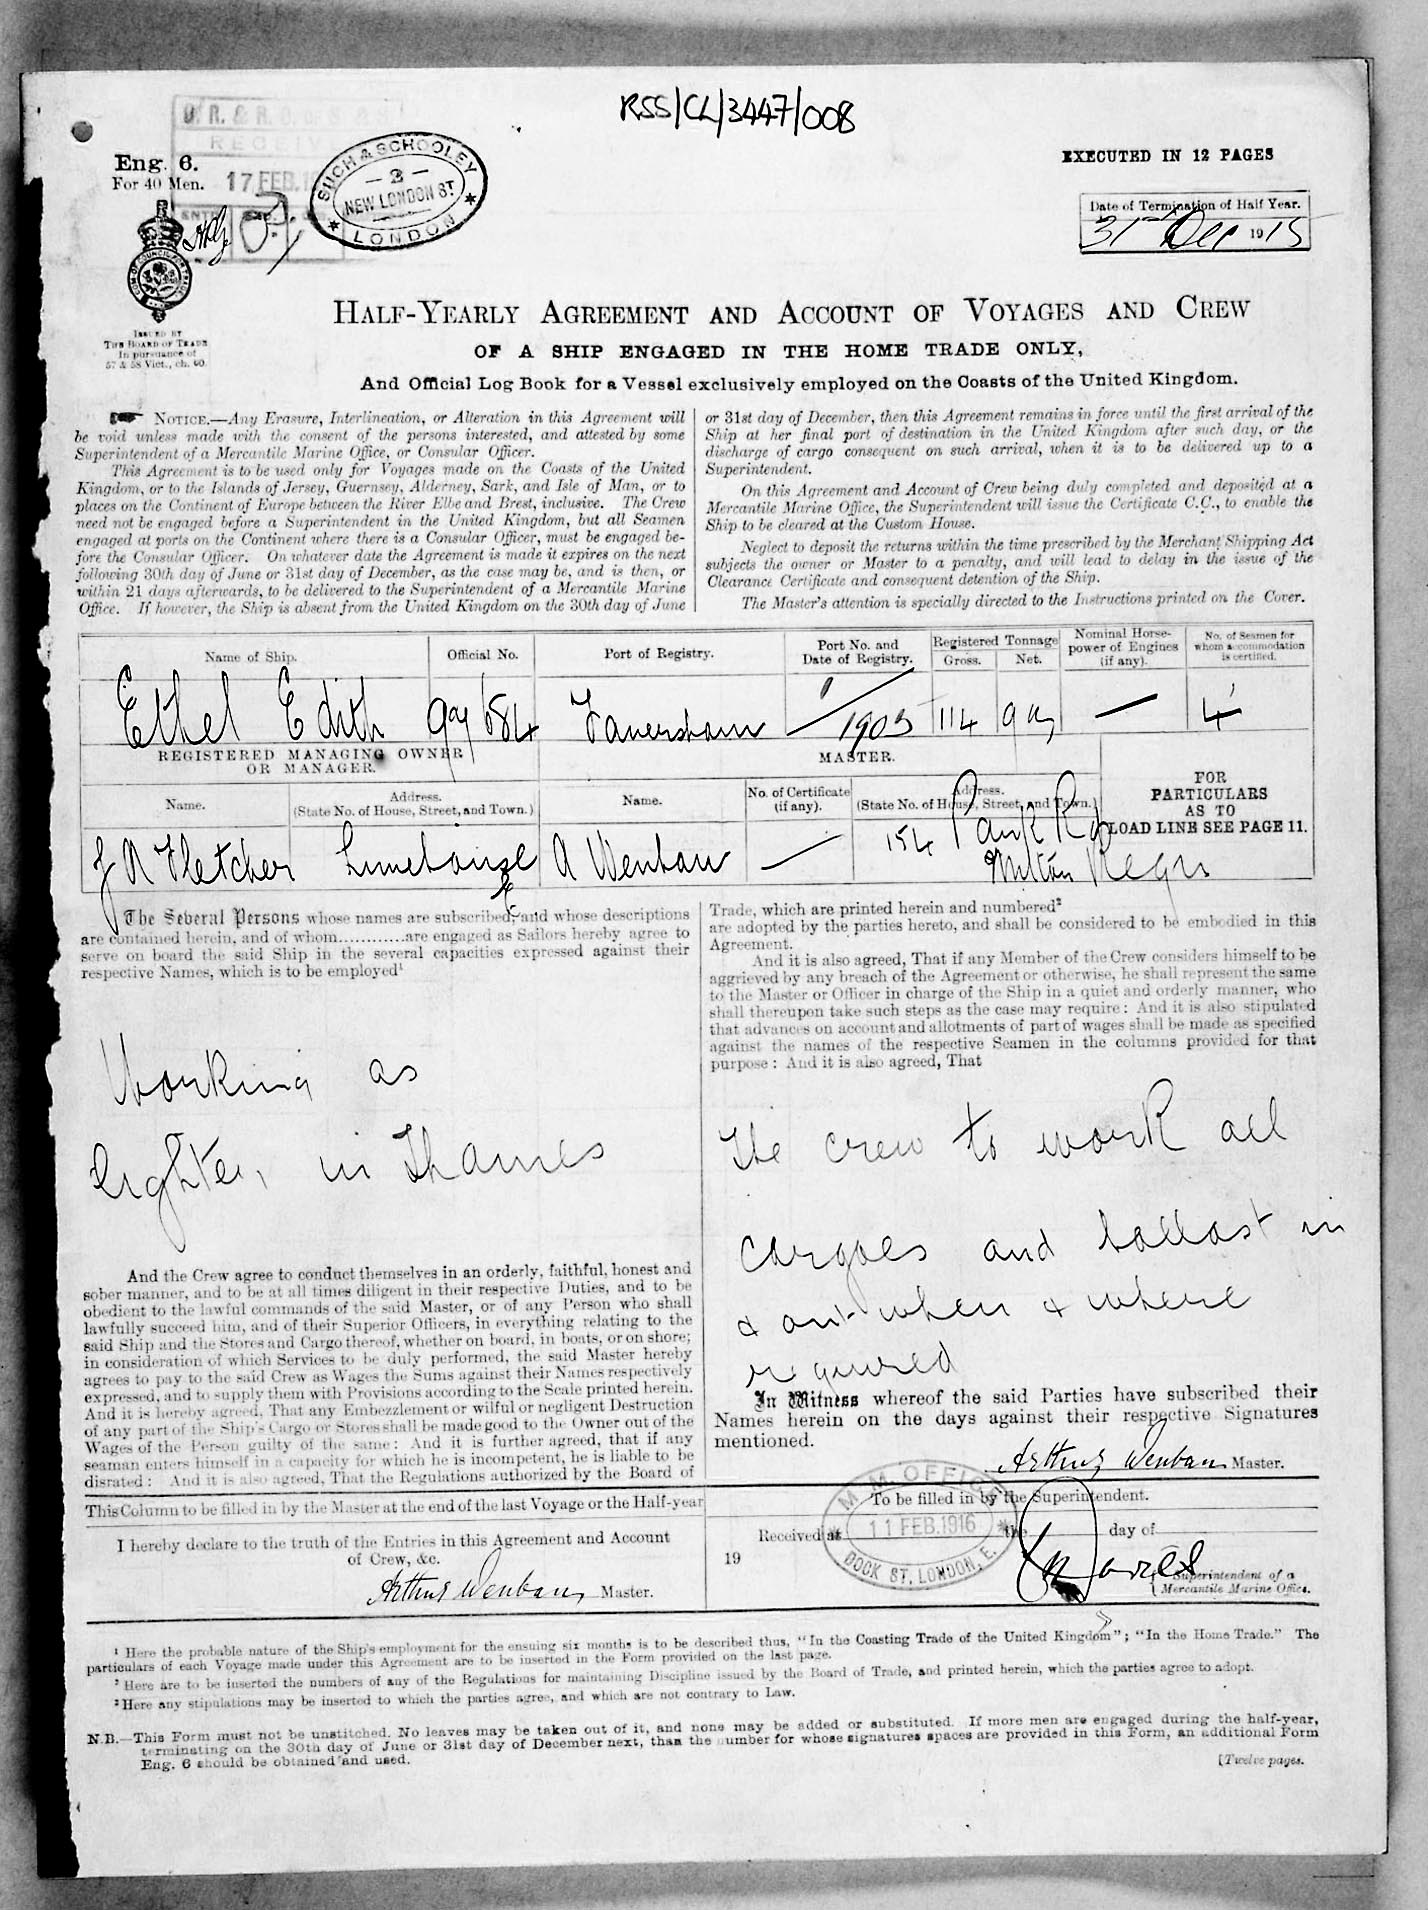 RSS/CL/3447/008
Eng. 6.
For 40 Men.
RECEIVED
17 FEB.
SUCH & SCHOOLEY
3
NEW LONDON ST
LONDON
EXECUTED IN 12 PAGES
Date of Termination of Half Year.
31st Dec 1915
ISSUED BY
THE BOARD OF TRADE
In pursuance of
57 & 58 Vict., ch. 60.
HALF-YEARLY AGREEMENT AND ACCOUNT OF VOYAGES AND CREW
OF A SHIP ENGAGED IN THE HOME TRADE ONLY,
And Official Log Book for a Vessel exclusively employed on the Coasts of the United Kingdom.
NOTICE.—Any Erasure, Interlineation, or Alteration in this Agreement will
be void unless made with the consent of the persons interested, and attested by some
Superintendent of a Mercantile Marine Office, or Consular Officer.
This Agreement is to be used only for Voyages made on the Coasts of the United
Kingdom, or to the Islands of Jersey, Guernsey, Alderney, Sark, and Isle of Man, or to
places on the Continent of Europe between the River Elbe and Brest, inclusive. The Crew
need not be engaged before a Superintendent in the United Kingdom, but all Seamen
engaged at ports on the Continent where there is a Consular Officer, must be engaged be-
fore the Consular Officer. On whatever date the Agreement is made it expires on the next
following 30th day of June or 31st day of December, as the case may be, and is then, or
within 21 days afterwards, to be delivered to the Superintendent of a Mercantile Marine
Office. If however, the Ship is absent from the United Kingdom on the 30th day of June
or 31st day of December, then this Agreement remains in force until the first arrival of the
Ship at her final port of destination in the United Kingdom after such day, or the
discharge of cargo consequent on such arrival, when it is to be delivered up to a
Superintendent.
On this Agreement and Account of Crew being duly completed and deposited at a
Mercantile Marine Office, the Superintendent will issue the Certificate C.C., to enable the
Ship to be cleared at the Custom House.
Neglect to deposit the returns within the time prescribed by the Merchant Shipping Act
subjects the owner or Master to a penalty, and will lead to delay in the issue of the
Clearance Certificate and consequent detention of the Ship.
The Master's attention is specially directed to the Instructions printed on the Cover.
Name of Ship. Official No. Port of Registry. Port No. and Date of Registry. Registered Tonnage Gross. Net. Nominal Horse-power of Engines (if any). No. of Seamen for whom accommodation is certified.
Ethel Edith 99684 Faversham 1/1903 114 97 — 4
REGISTERED MANAGING OWNER
OR MANAGER.
MASTER.
FOR
PARTICULARS
AS TO
LOAD LINE SEE PAGE 11.
Name. Address. (State No. of House, Street, and Town.) Name. No. of Certificate (if any). Address. (State No. of House, Street, and Town.)
J A Fletcher Limehouse A Wenban — 154 Park Rd
Milton Regis
The Several Persons whose names are subscribed, and whose descriptions
are contained herein, and of whom............are engaged as Sailors hereby agree to
serve on board the said Ship in the several capacities expressed against their
respective Names, which is to be employed¹
Working as
lighter, in Thames
And the Crew agree to conduct themselves in an orderly, faithful, honest and
sober manner, and to be at all times diligent in their respective Duties, and to be
obedient to the lawful commands of the said Master, or of any Person who shall
lawfully succeed him, and of their Superior Officers, in everything relating to the
said Ship and the Stores and Cargo thereof, whether on board, in boats, or on shore;
in consideration of which Services to be duly performed, the said Master hereby
agrees to pay to the said Crew as Wages the Sums against their Names respectively
expressed, and to supply them with Provisions according to the Scale printed herein.
And it is hereby agreed, That any Embezzlement or wilful or negligent Destruction
of any part of the Ship's Cargo or Stores shall be made good to the Owner out of the
Wages of the Person guilty of the same: And it is further agreed, that if any
seaman enters himself in a capacity for which he is incompetent, he is liable to be
disrated: And it is also agreed, That the Regulations authorized by the Board of
Trade, which are printed herein and numbered²
are adopted by the parties hereto, and shall be considered to be embodied in this
Agreement.
And it is also agreed, That if any Member of the Crew considers himself to be
aggrieved by any breach of the Agreement or otherwise, he shall represent the same
to the Master or Officer in charge of the Ship in a quiet and orderly manner, who
shall thereupon take such steps as the case may require: And it is also stipulated
that advances on account and allotments of part of wages shall be made as specified
against the names of the respective Seamen in the columns provided for that
purpose: And it is also agreed, That
The crew to work all
cargoes and ballast in
& out when & where
required
In Witness whereof the said Parties have subscribed their
Names herein on the days against their respective Signatures
mentioned.
Arthur Wenban Master.
This Column to be filled in by the Master at the end of the last Voyage or the Half-year
I hereby declare to the truth of the Entries in this Agreement and Account
of Crew, &c.
Arthur Wenban Master.
To be filled in by the Superintendent.
Received at the day of
19
Superintendent of a
Mercantile Marine Office.
M. M. OFFICE
11 FEB. 1916
DOCK ST. LONDON, E.
¹ Here the probable nature of the Ship's employment for the ensuing six months is to be described thus, "In the Coasting Trade of the United Kingdom"; "In the Home Trade." The
particulars of each Voyage made under this Agreement are to be inserted in the Form provided on the last page.
² Here are to be inserted the numbers of any of the Regulations for maintaining Discipline issued by the Board of Trade, and printed herein, which the parties agree to adopt.
³ Here any stipulations may be inserted to which the parties agree, and which are not contrary to Law.
N.B.—This Form must not be unstitched. No leaves may be taken out of it, and none may be added or substituted. If more men are engaged during the half-year,
terminating on the 30th day of June or 31st day of December next, than the number for whose signatures spaces are provided in this Form, an additional Form
Eng. 6 should be obtained and used.
[Twelve pages.